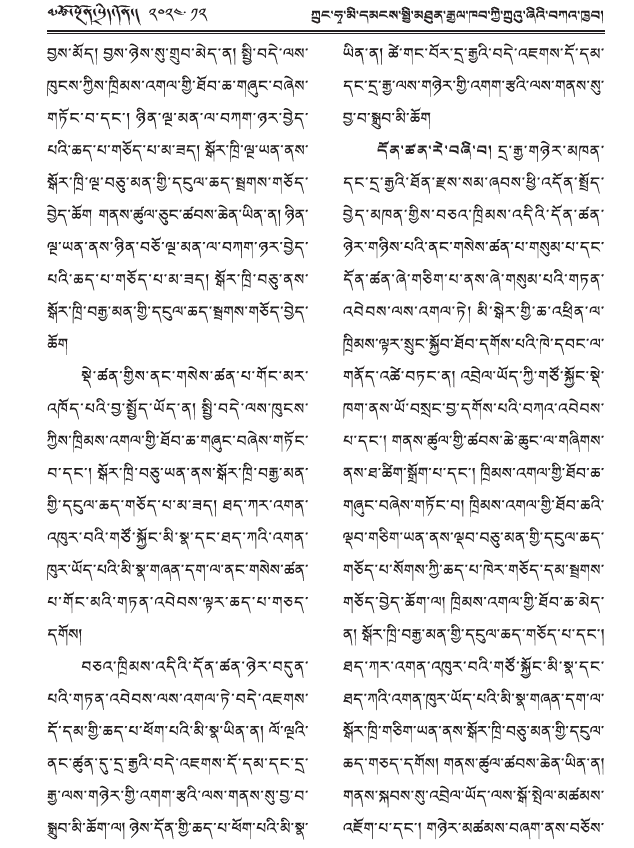 ༢༠༢༤.༡༢
ཀྲུང་ཧྭ་མི་དམངས་སྤྱི་མཐུན་རྒྱལ་ཁབ་ཀྱི་ཀྲུའུ་ཞིའི་བཀའ་ཁྱབ།
བྱས་མོད། བྱས་ཉེས་སུ་གྲུབ་མེད་ན། སྤྱི་བདེ་ལས་
ཁུངས་ཀྱིས་ཁྲིམས་འགལ་གྱི་ཐོབ་ཆ་གཞུང་བཞེས་
གཏོང་བ་དང་། ཉིན་ལྔ་མན་ལ་བཀག་ཉར་བྱེད་
པའི་ཆད་པ་གཅོད་པ་མ་ཟད། སྒོར་ཁྲི་ལྔ་ཡན་ནས་
སྒོར་ཁྲི་ལྔ་བཅུ་མན་གྱི་དངུལ་ཆད་སྦྲགས་གཅོད་
བྱེད་ཆོག གནས་ཚུལ་ཅུང་ཚབས་ཆེན་ཡིན་ན། ཉིན་
ལྔ་ཡན་ནས་ཉིན་བཅོ་ལྔ་མན་ལ་བཀག་ཉར་བྱེད་
པའི་ཆད་པ་གཅོད་པ་མ་ཟད། སྒོར་ཁྲི་བཅུ་ནས་
སྒོར་ཁྲི་བརྒྱ་མན་གྱི་དངུལ་ཆད་སྦྲགས་གཅོད་བྱེད་
ཆོག
སྡེ་ཚན་གྱིས་ནང་གསེས་ཚན་པ་གོང་མར་
འཁོད་པའི་བྱ་སྤྱོད་ཡོད་ན། སྤྱི་བདེ་ལས་ཁུངས་
ཀྱིས་ཁྲིམས་འགལ་གྱི་ཐོབ་ཆ་གཞུང་བཞེས་གཏོང་
བ་དང་། སྒོར་ཁྲི་བཅུ་ཡན་ནས་སྒོར་ཁྲི་བརྒྱ་མན་
གྱི་དངུལ་ཆད་གཅོད་པ་མ་ཟད། ཐད་ཀར་འགན་
འཁུར་བའི་གཙོ་སྐྱོང་མི་སྣ་དང་ཐད་ཀའི་འགན་
ཁུར་ཡོད་པའི་མི་སྣ་གཞན་དག་ལ་ནང་གསེས་ཚན་
པ་གོང་མའི་གཏན་འབེབས་ལྟར་ཆད་པ་གཅད་
དགོས།
བཅའ་ཁྲིམས་འདིའི་དོན་ཚན་ཉེར་བདུན་
པའི་གཏན་འབེབས་ལས་འགལ་ཏེ་བདེ་འཇགས་
དོ་དམ་གྱི་ཆད་པ་ཕོག་པའི་མི་སྣ་ཡིན་ན། ལོ་ལྔའི་
ནང་ཚུན་དུ་དྲ་རྒྱའི་བདེ་འཇགས་དོ་དམ་དང་དྲ་
རྒྱ་ལས་གཉེར་གྱི་འགག་རྩའི་ལས་གནས་སུ་བྱ་བ་
སྒྲུབ་མི་ཆོག་ལ། ཉེས་དོན་གྱི་ཆད་པ་ཕོག་པའི་མི་སྣ་
ཡིན་ན། ཚེ་གང་བོར་དྲ་རྒྱའི་བདེ་འཇགས་དོ་དམ་
དང་དྲ་རྒྱ་ལས་གཉེར་གྱི་འགག་རྩའི་ལས་གནས་སུ་
བྱ་བ་སྒྲུབ་མི་ཆོག
དོན་ཚན་རེ་བཞི་བ། དྲ་རྒྱ་གཉེར་མཁན་
དང་དྲ་རྒྱའི་ཐོན་རྫས་སམ་ཞབས་ཕྱི་འདོན་སྤྲོད་
བྱེད་མཁན་གྱིས་བཅའ་ཁྲིམས་འདིའི་དོན་ཚན་
ཉེར་གཉིས་པའི་ནང་གསེས་ཚན་པ་གསུམ་པ་དང་
དོན་ཚན་ཞེ་གཅིག་པ་ནས་ཞེ་གསུམ་པའི་གཏན་
འབེབས་ལས་འགལ་ཏེ། མི་སྒེར་གྱི་ཆ་འཕྲིན་ལ་
ཁྲིམས་ལྟར་སྲུང་སྐྱོབ་ཐོབ་དགོས་པའི་ཁེ་དབང་ལ་
གནོད་འཚེ་བཏང་ན། འབྲེལ་ཡོད་ཀྱི་གཙོ་སྐྱོང་སྡེ་
ཁག་ནས་ཡོ་བསྲང་བྱ་དགོས་པའི་བཀའ་འབེབས་
པ་དང་། གནས་ཚུལ་གྱི་ཚབས་ཆེ་ཆུང་ལ་གཞིགས་
ནས་ཐ་ཚིག་སྒྲོག་པ་དང་། ཁྲིམས་འགལ་གྱི་ཐོབ་ཆ་
གཞུང་བཞེས་གཏོང་བ། ཁྲིམས་འགལ་གྱི་ཐོབ་ཆའི་
ལྡབ་གཅིག་ཡན་ནས་ལྡབ་བཅུ་མན་གྱི་དངུལ་ཆད་
གཅོད་པ་སོགས་ཀྱི་ཆད་པ་ཁེར་གཅོད་དམ་སྦྲགས་
གཅོད་བྱེད་ཆོག་ལ། ཁྲིམས་འགལ་གྱི་ཐོབ་ཆ་མེད་
ན། སྒོར་ཁྲི་བརྒྱ་མན་གྱི་དངུལ་ཆད་གཅོད་པ་དང་།
ཐད་ཀར་འགན་འཁུར་བའི་གཙོ་སྐྱོང་མི་སྣ་དང་
ཐད་ཀའི་འགན་ཁུར་ཡོད་པའི་མི་སྣ་གཞན་དག་ལ་
སྒོར་ཁྲི་གཅིག་ཡན་ནས་སྒོར་ཁྲི་བཅུ་མན་གྱི་དངུལ་
ཆད་གཅད་དགོས། གནས་ཚུལ་ཚབས་ཆེན་ཡིན་ན།
གནས་སྐབས་སུ་འབྲེལ་ཡོད་ལས་སྒོ་སྤེལ་མཚམས་
འཇོག་པ་དང་། གཉེར་མཚམས་བཞག་ནས་བཅོས་